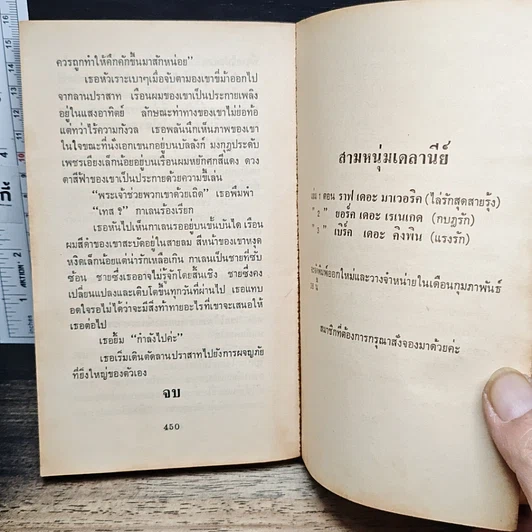 ควรถูกทำให้คึกคักขึ้นมาสักหน่อย”
เธอหัวเราะเบาๆเมื่อจับตามองเขาขี่ม้าออกไป
จากลานปราสาท เรือนผมของเขาเป็นประกายเพลิง
อยู่ในแสงอาทิตย์ ลักษณะท่าทางของเขาไม่ย่อท้อ
แต่ทว่าไร้ความกังวล เธอพลันนึกเห็นภาพของเขา
ในใจขณะที่นั่งเอกเขนกอยู่บนบัลลังก์ มงกุฎประดับ
เพชรเอียงเล็กน้อยอยู่บนเรือนผมหยักศกสีแดง ดวง
ตาสีฟ้าของเขาเป็นประกายด้วยความขี้เล่น
“พระเจ้าช่วยพวกเขาด้วยเถิด” เธอพึมพำ
“เทส ?” กาเลนร้องเรียก
เธอหันไปเห็นกาเลนรออยู่บนขั้นบันได เรือน
ผมสีดำของเขาสะบัดอยู่ในสายลม สีหน้าของเขาหงุด
หงิดเล็กน้อยแต่น่ารักเหลือเกิน กาเลนเป็นชายที่ซับ
ซ้อน ชายซึ่งเธออาจไม่รู้จักโดยสิ้นเชิง ชายซึ่งคง
เปลี่ยนแปลงและเติบโตขึ้นทุกวันที่ผ่านไป เธอแทบ
อดใจรอไม่ได้ว่าจะมีสิ่งท้าทายอะไรที่เขาจะเสนอให้
เธอต่อไป
เธอยิ้ม “กำลังไปค่ะ”
เธอเริ่มเดินตัดลานปราสาทไปยังการผจญภัย
ที่ยิ่งใหญ่ของตัวเอง
จบ
450
สามหนุ่มเดลานีย์
1 ตอน ราฟ เดอะ มาเวอริค (ไล่รักสุดสายรุ้ง)
" 2 " ยอร์ค เดอะ เรเนเกด (กบฏรัก)
" 3 " เบิร์ค เดอะ คิงพิน (แรงรัก)
ออกใหม่และวางจำหน่ายในเดือนกุมภาพันธ์
สมาชิกที่ต้องการกรุณาสั่งจองมาด้วยค่ะ